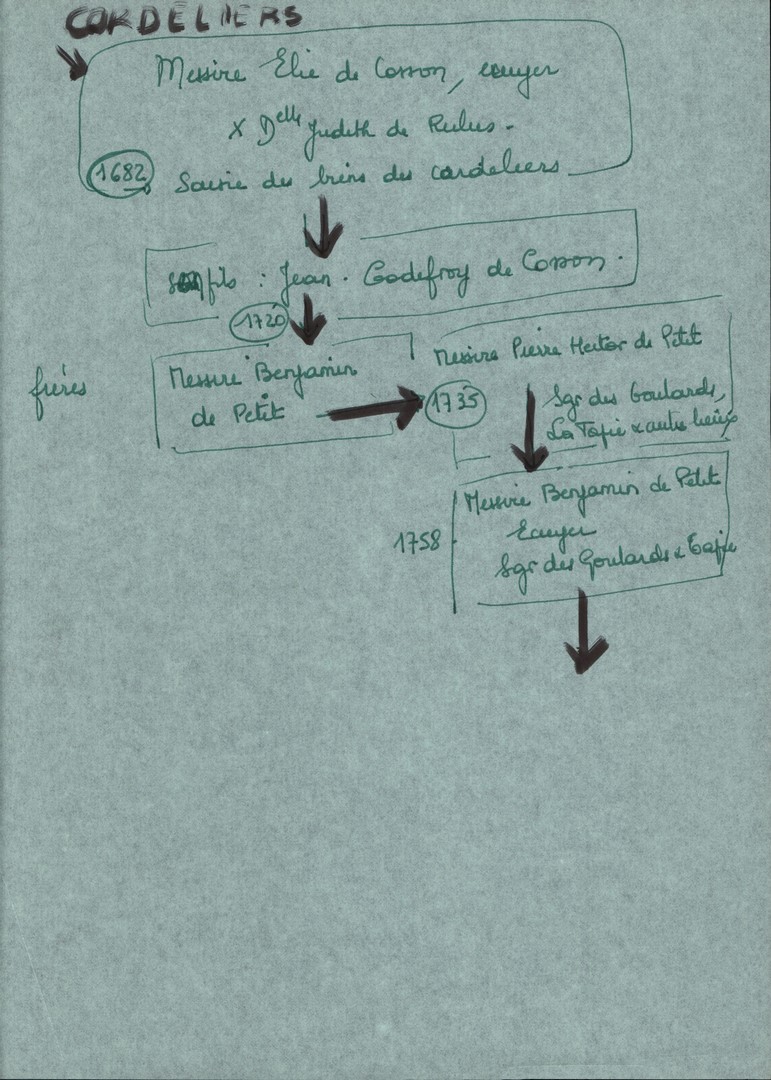 CORDELIERS
Messire Elie de Cosson, ecuyer
x Delle Judeth de Rulus.
1682 Saisie des biens des cordeliers
son fils : Jean. Godefroy de Cosson.
1720
frères
Messire Benjamin
de Petit
Messire Pierre Hector de Petit
1735
Sgr des Goulards,
La Tapie & autres lieux
Messire Benjamin de Petit
1758
Ecuyer
Sgr des Goulards & Tapie